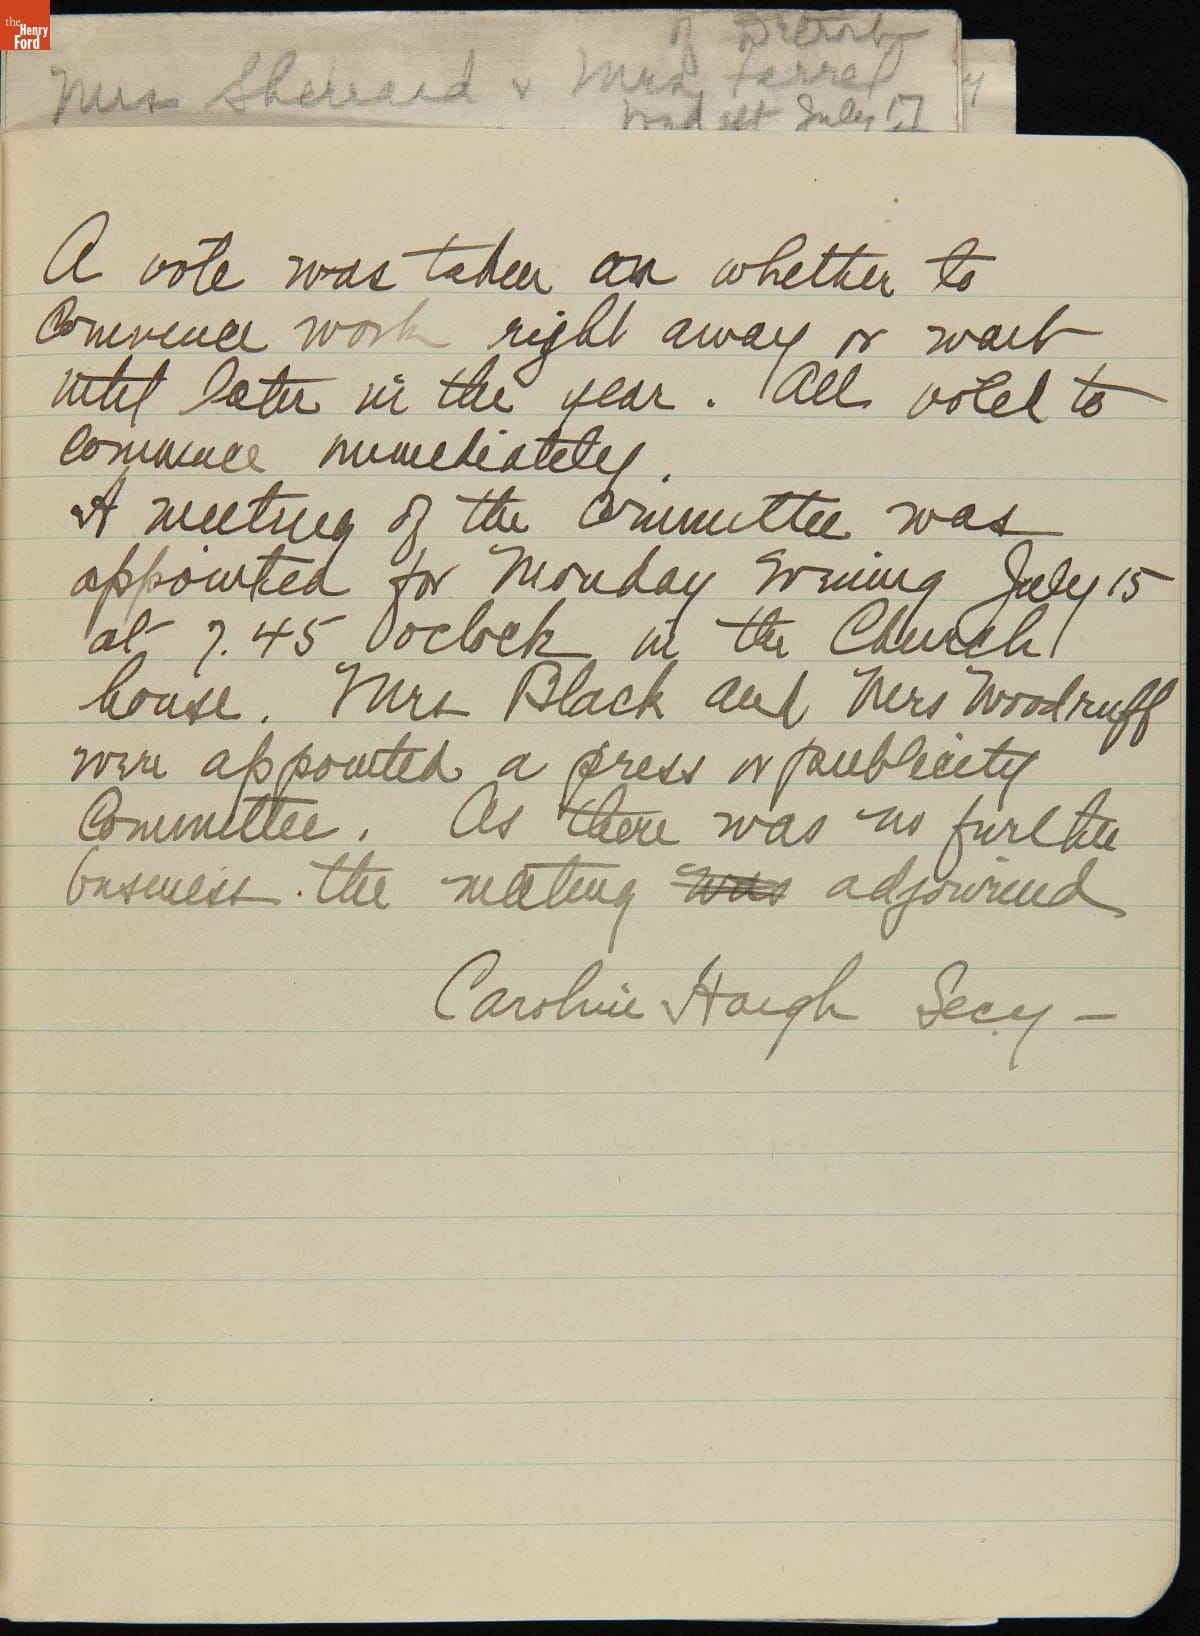 the
Henry
Ford
of Detroit
Mrs Sherrard & Mrs Farrel
July 17
A vote was taken on whether to
Commence work right away or wait
until later in the year. All voted to
commence immediately.
A meeting of the Committee was
appointed for Monday Evening July 15
at 7.45 oclock in the Church
house. Mrs Black and Mrs Woodruff
were appointed a press or publicity
Committee. As there was no further
business. the meeting was adjourned
Caroline Haigh Secy –